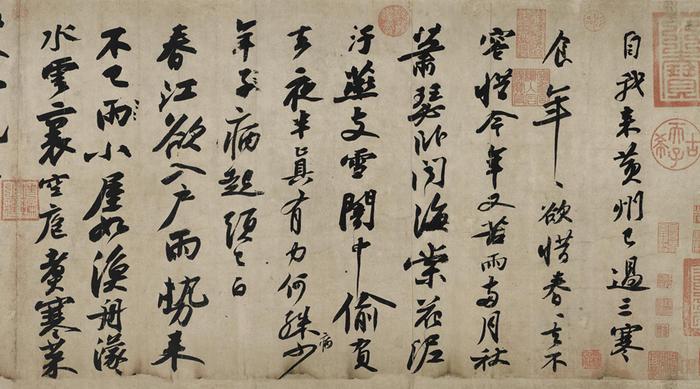 自我來黃州已過三寒
食年〻欲惜春〻去不
容惜今年又苦雨兩月秋
蕭瑟卧聞海棠花泥
汙燕支雪闇中偷負
去夜半真有力何殊少
病
年子病起頭已白
春江欲入戶雨勢來
不已雨小屋如漁舟濛〻
水雲裏空庖煮寒菜
古希天子